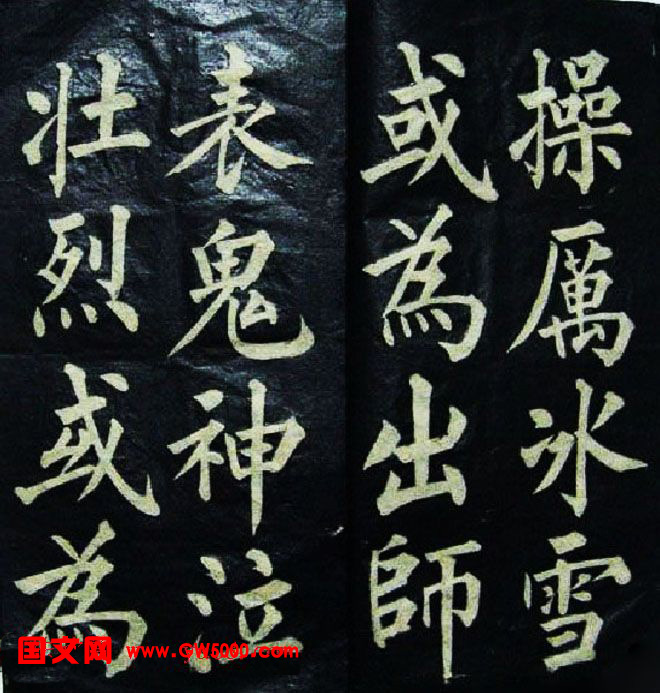 操厲冰雪
或為出師
表鬼神泣
壮烈或為
国文网 www.GW5000.com